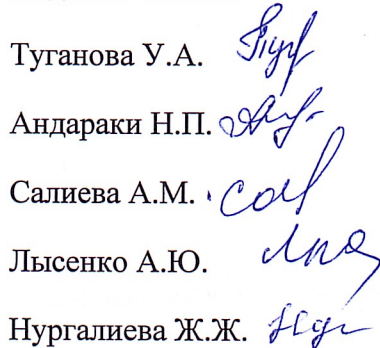 Туганова У.А.
Андараки Н.П.
Салиева А.М.
Лысенко А.Ю.
Нургалиева Ж.Ж.